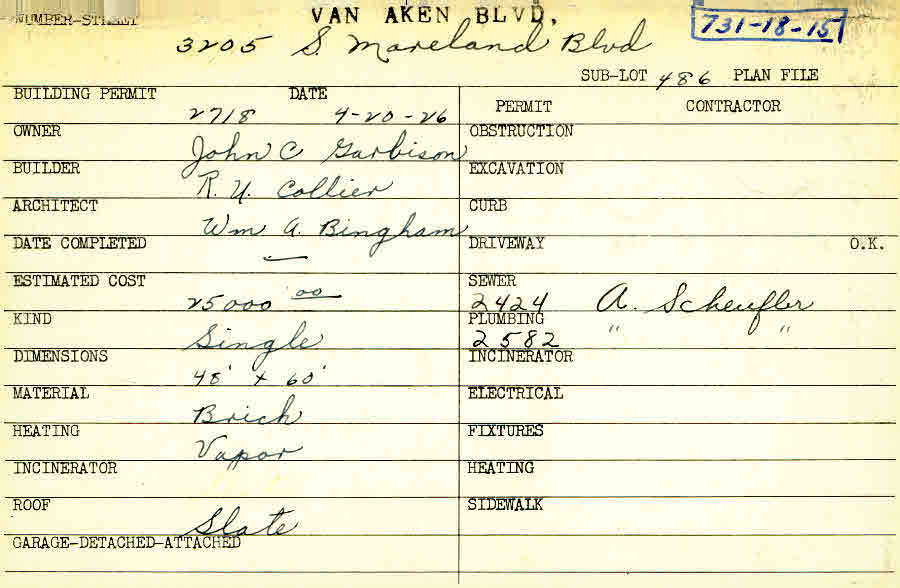 NUMBER-STREET
VAN AKEN BLVD.
3205 S. Moreland Blvd
731-18-15
SUB-LOT 486 PLAN FILE
BUILDING PERMIT DATE
2718 4-20-26
PERMIT CONTRACTOR
OWNER
John C Garbison
OBSTRUCTION
BUILDER
R. U. Collier
EXCAVATION
ARCHITECT
Wm A. Bingham
CURB
DATE COMPLETED
DRIVEWAY O.K.
ESTIMATED COST
25000 00
SEWER
2424 A. Scheufler
KIND
Single
PLUMBING
2582 " "
DIMENSIONS
48' x 60'
INCINERATOR
MATERIAL
Brick
ELECTRICAL
HEATING
Vapor
FIXTURES
INCINERATOR
HEATING
ROOF
Slate
SIDEWALK
GARAGE-DETACHED-ATTACHED